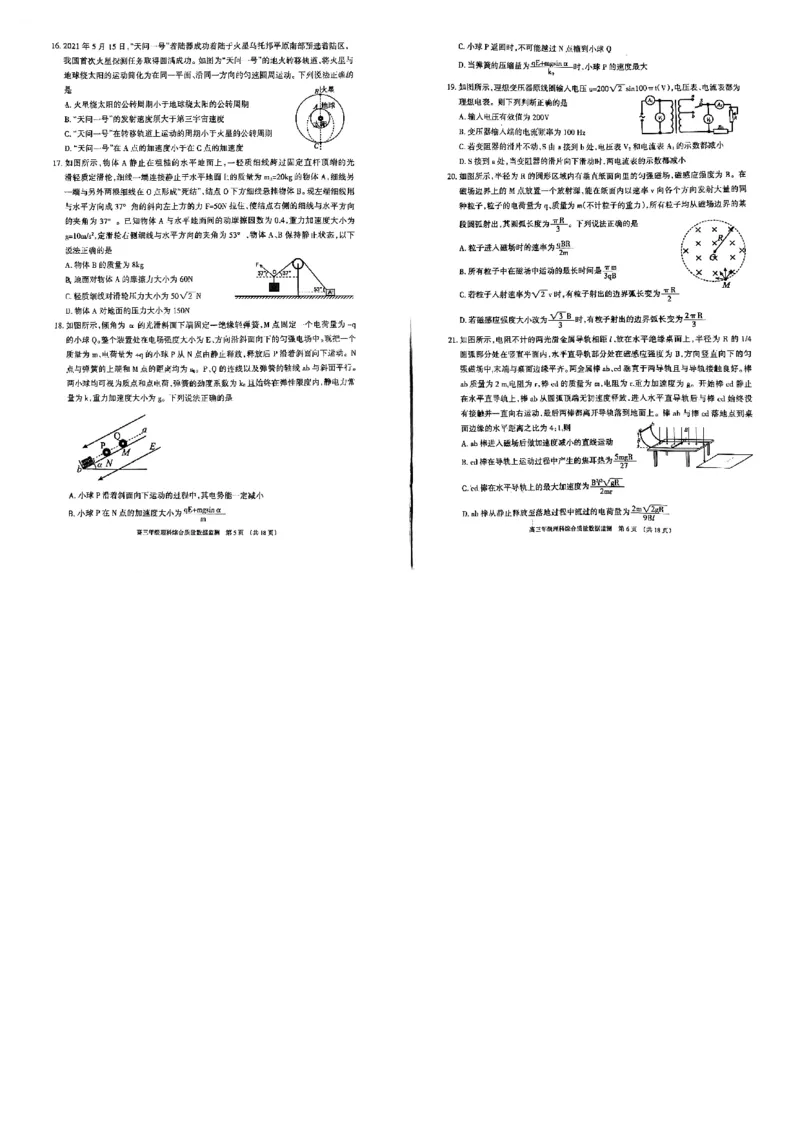 16. 2021 年 5 月 15 日,“天问一号”着陆器成功着陆于火星乌托邦平原南部预选着陆区,
我国首次火星探测任务取得圆满成功。如图为“天问一号”的地火转移轨道,将火星与
地球绕太阳的运动简化为在同一平面、沿同一方向的匀速圆周运动。下列说法正确的
是
A. 火星绕太阳的公转周期小于地球绕太阳的公转周期
B. “天问一号”的发射速度须大于第三宇宙速度
C. “天问一号”在转移轨道上运动的周期小于火星的公转周期
D. “天问一号”在 A 点的加速度小于在 C 点的加速度
B 火星
A 地球
太阳
C
17. 如图所示,物体 A 静止在粗糙的水平地面上,一轻质细线跨过固定直杆顶端的光
滑轻质定滑轮,细线一端连接静止于水平地面上的质量为 m₁=20kg 的物体 A,细线另
一端与另外两根细线在 O 点形成“死结”,结点 O 下方细线悬挂物体 B。现左端细线用
与水平方向成 37° 角的斜向左上方的力 F=50N 拉住,使结点右侧的细线与水平方向
的夹角为 37° 。已知物体 A 与水平地面间的动摩擦因数为 0.4,重力加速度大小为
g=10m/s²,定滑轮右侧细线与水平方向的夹角为 53° ,物体 A、B 保持静止状态,以下
说法正确的是
A. 物体 B 的质量为 8kg
B. 地面对物体 A 的摩擦力大小为 60N
C. 轻质细线对滑轮压力大小为 50√2 N
D. 物体 A 对地面的压力大小为 150N
F 37° O 37°
53° A
18. 如图所示,倾角为 α 的光滑斜面下端固定一绝缘轻弹簧,M 点固定一个电荷量为 -q
的小球 Q。整个装置处在电场强度大小为 E、方向沿斜面向下的匀强电场中。现把一个
质量为 m、电荷量为 +q 的小球 P 从 N 点由静止释放,释放后 P 沿着斜面向下运动。N
点与弹簧的上端和 M 点的距离均为 s₀。P、Q 的连线以及弹簧的轴线 ab 与斜面平行。
两小球均可视为质点和点电荷,弹簧的劲度系数为 k₀且始终在弹性限度内,静电力常
量为 k,重力加速度大小为 g。下列说法正确的是
a
Q
P
M
E
N
b
α
A. 小球 P 沿着斜面向下运动的过程中,其电势能一定减小
B. 小球 P 在 N 点的加速度大小为 (qE+mgsin α)/m
高三年级理科综合质量数据监测 第 5 页 (共 18 页)
C. 小球 P 返回时,不可能越过 N 点撞到小球 Q
D. 当弹簧的压缩量为 (qE+mgsin α)/k₀ 时,小球 P 的速度最大
19. 如图所示,理想变压器原线圈输入电压 u=200√2 sin100πt(V),电压表、电流表都为
理想电表。则下列判断正确的是
A. 输入电压有效值为 200V
B. 变压器输入端的电流频率为 100 Hz
C. 若变阻器的滑片不动,S 由 a 拨到 b 处,电压表 V₂ 和电流表 A₁ 的示数都减小
D. S 拨到 a 处,当变阻器的滑片向下滑动时,两电流表的示数都减小
20. 如图所示,半径为 R 的圆形区域内有垂直纸面向里的匀强磁场,磁感应强度为 B。在
磁场边界上的 M 点放置一个放射源,能在纸面内以速率 v 向各个方向发射大量的同
种粒子,粒子的电荷量为 q、质量为 m(不计粒子的重力),所有粒子均从磁场边界的某
段圆弧射出,其圆弧长度为 πR/3 。下列说法正确的是
A. 粒子进入磁场时的速率为 qBR/2m
B. 所有粒子中在磁场中运动的最长时间是 πm/3qB
C. 若粒子入射速率为 √2 v 时,有粒子射出的边界弧长变为 πR/2
D. 若磁感应强度大小改为 √3 B/3 时,有粒子射出的边界弧长变为 2πR/3
R
O
M
21. 如图所示,电阻不计的两光滑金属导轨相距 l,放在水平绝缘桌面上,半径为 R 的 1/4
圆弧部分处在竖直平面内,水平直导轨部分处在磁感应强度为 B、方向竖直向下的匀
强磁场中,末端与桌面边缘平齐。两金属棒 ab、cd 垂直于两导轨且与导轨接触良好。棒
ab 质量为 2 m,电阻为 r,棒 cd 的质量为 m,电阻为 r,重力加速度为 g。开始棒 cd 静止
在水平直导轨上,棒 ab 从圆弧顶端无初速度释放,进入水平直导轨后与棒 cd 始终没
有接触并一直向右运动,最后两棒都离开导轨落到地面上。棒 ab 与棒 cd 落地点到桌
面边缘的水平距离之比为 4:1,则
A. ab 棒进入磁场后做加速度减小的直线运动
B. cd 棒在导轨上运动过程中产生的焦耳热为 5mgR/27
C. cd 棒在水平导轨上的最大加速度为
D. ab 棒从静止释放至落地过程中流过的电荷量为 2m√2gR/9Bl
高三年级理科综合质量数据监测 第 6 页 (共 18 页)